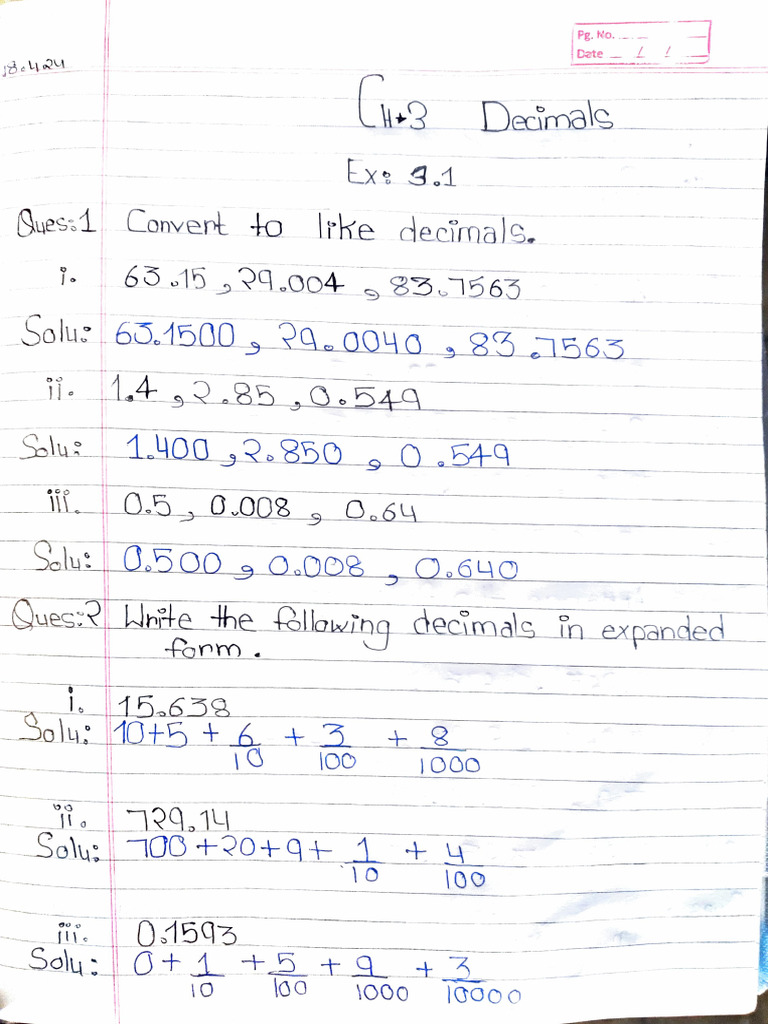 Pg. No.
Date / /
18.4.24
CH-3 Decimals
Ex: 3.1
Ques:1 Convert to like decimals.
i. 63.15, 29.004, 83.7563
Solu: 63.1500, 29.0040, 83.7563
ii. 1.4, 2.85, 0.549
Solu: 1.400, 2.850, 0.549
iii. 0.5, 0.008, 0.64
Solu: 0.500, 0.008, 0.640
Ques:2 Write the following decimals in expanded
form.
i. 15.638
Solu: 10+5 + 6/10 + 3/100 + 8/1000
ii. 729.14
Solu: 700 +20+9+ 1/10 + 4/100
iii. 0.1593
Solu: 0 + 1/10 + 5/100 + 9/1000 + 3/10000